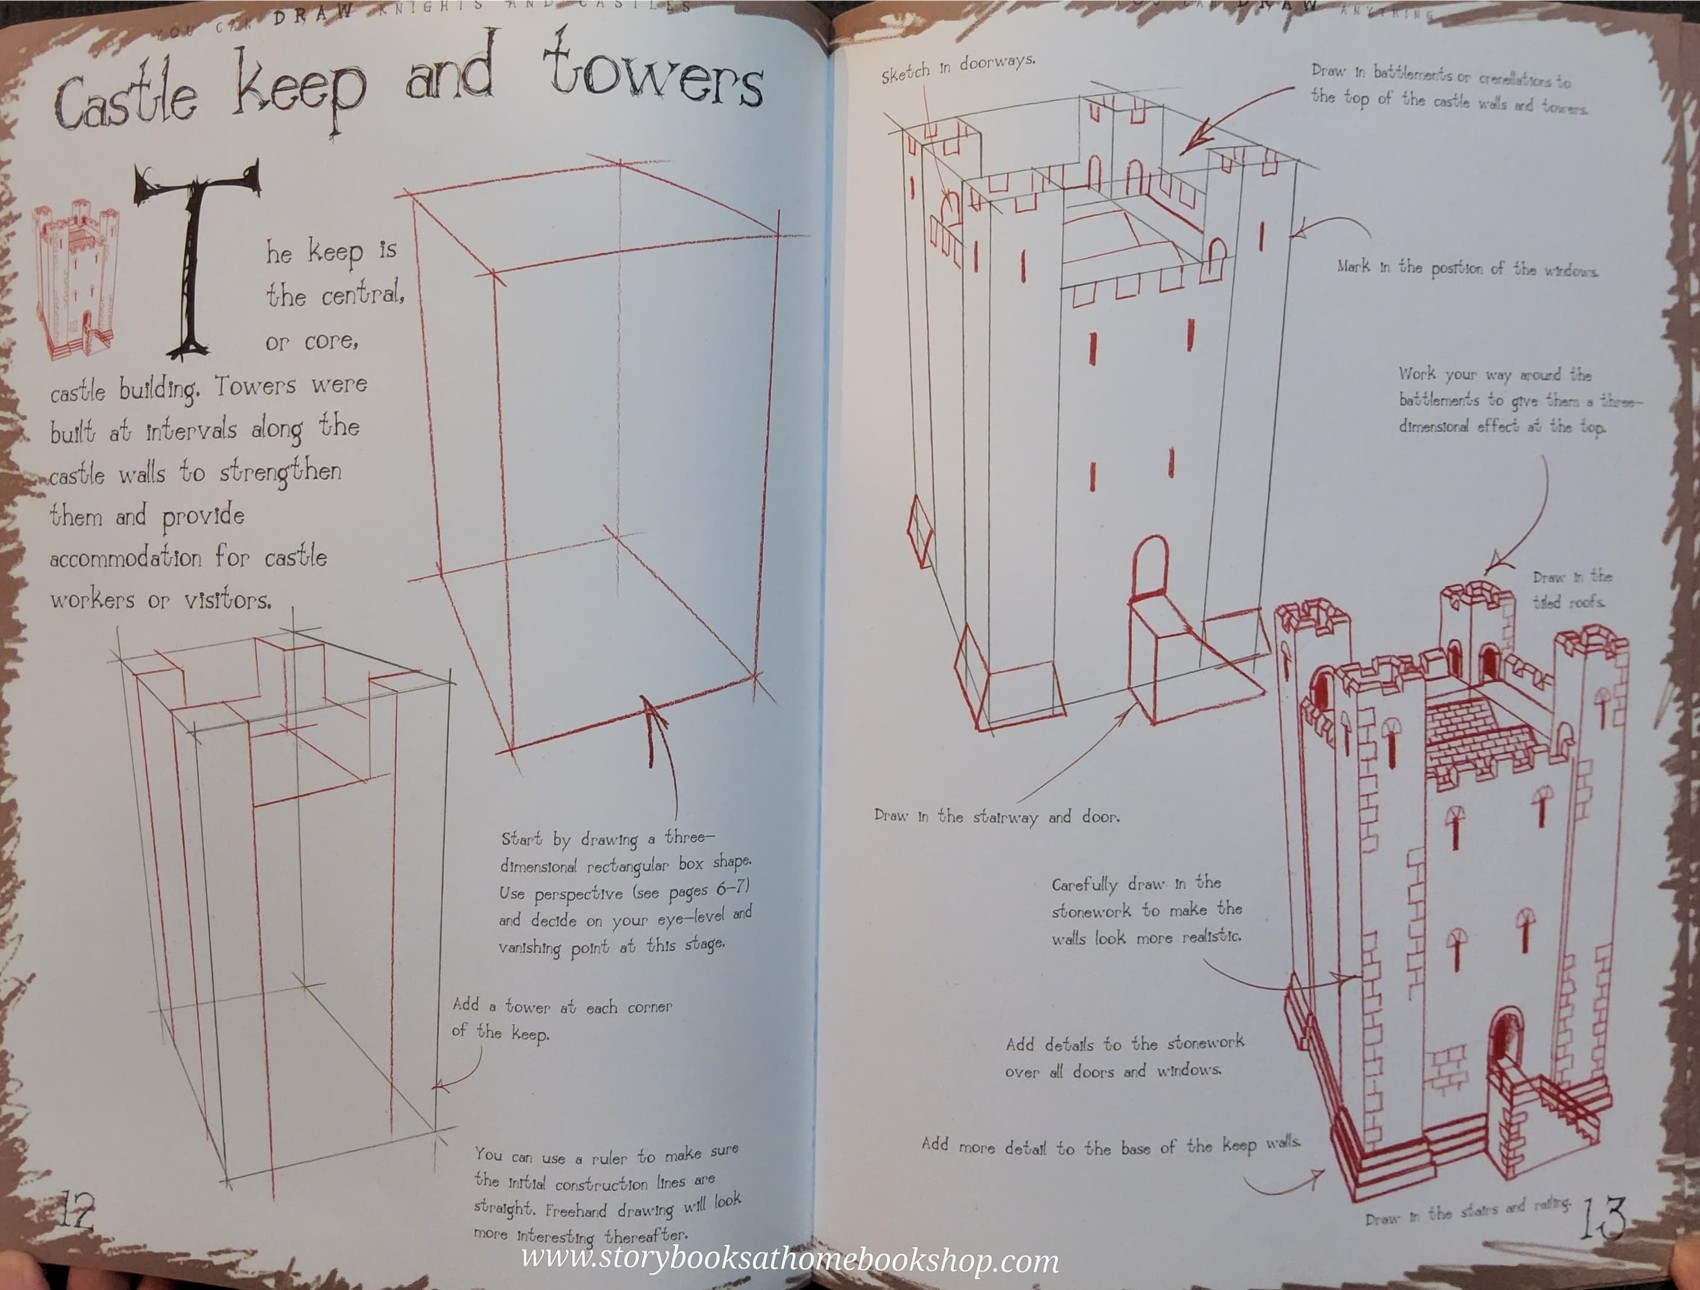 YOU CAN DRAW KNIGHTS AND CASTLES
Castle keep and towers
The keep is
the central,
or core,
castle building. Towers were
built at intervals along the
castle walls to strengthen
them and provide
accommodation for castle
workers or visitors.
Start by drawing a three-
dimensional rectangular box shape.
Use perspective (see pages 6-7)
and decide on your eye-level and
vanishing point at this stage.
Add a tower at each corner
of the keep.
You can use a ruler to make sure
the initial construction lines are
straight. Freehand drawing will look
more interesting thereafter.
12
YOU CAN DRAW ANYTHING
Sketch in doorways.
Draw in battlements or crenellations to
the top of the castle walls and towers.
Mark in the position of the windows.
Work your way around the
battlements to give them a three-
dimensional effect at the top.
Draw in the
tiled roofs.
Draw in the stairway and door.
Carefully draw in the
stonework to make the
walls look more realistic.
Add details to the stonework
over all doors and windows.
Add more detail to the base of the keep walls.
Draw in the stairs and railing.
13
www.storybooksathomebookshop.com